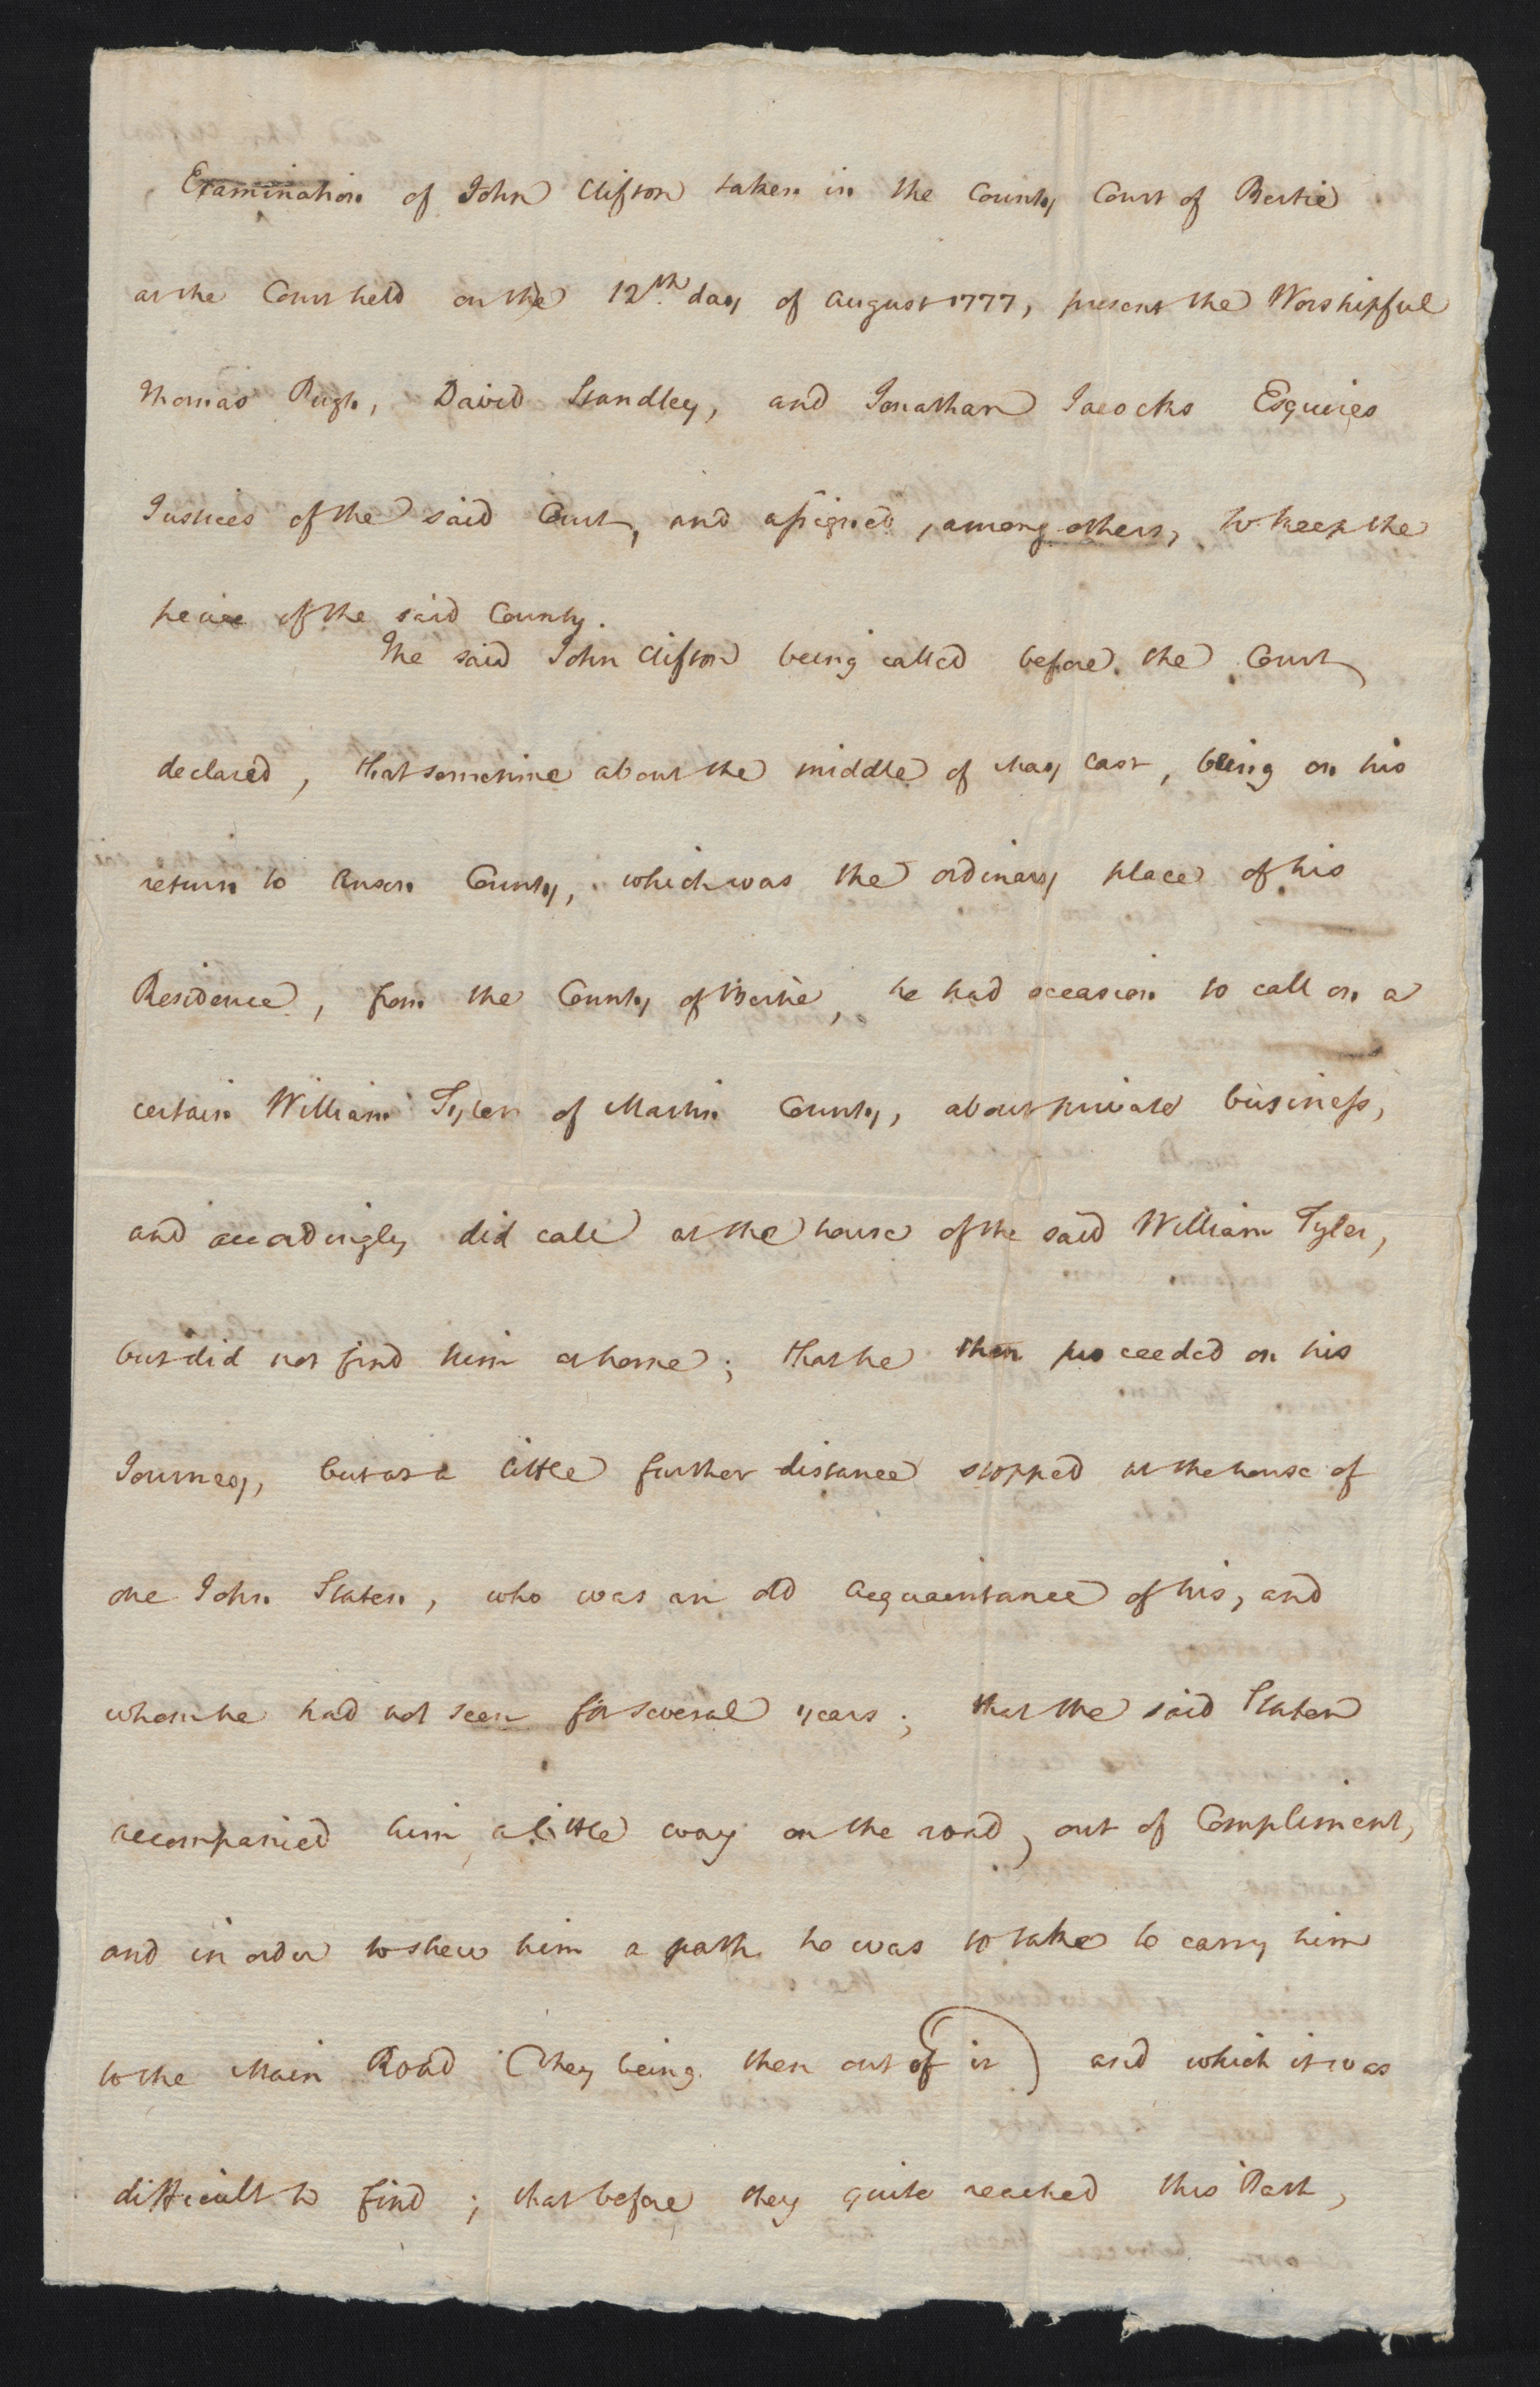 Examination of John Clifton taken in the County Court of Bertie
at the Court held on the 12th day of August 1777, present the Worshipful
Thomas Pugh, David Standley, and Jonathan Jacocks Esquires
Justices of the said Court, and assigned, among others, to keep the
peace of the said County.
The said John Clifton being called before the Court
declared, that sometime about the middle of May last, being on his
return to Anson County, which was the ordinary place of his
Residence, from the County of Bertie, he had occasion to call on a
certain William Tyler of Martin County, about private business,
and accordingly did call at the house of the said William Tyler,
but did not find him at home; that he then proceeded on his
Journey, but at a little further distance stopped at the house of
one John Staten, who was an old acquaintance of his, and
whom he had not seen for several years; that the said Staten
accompanied him a little way on the road, out of Compliment,
and in order to shew him a path he was to take to carry him
to the Main Road (they being then out of it) and which it was
difficult to find; that before they quite reached this Path,